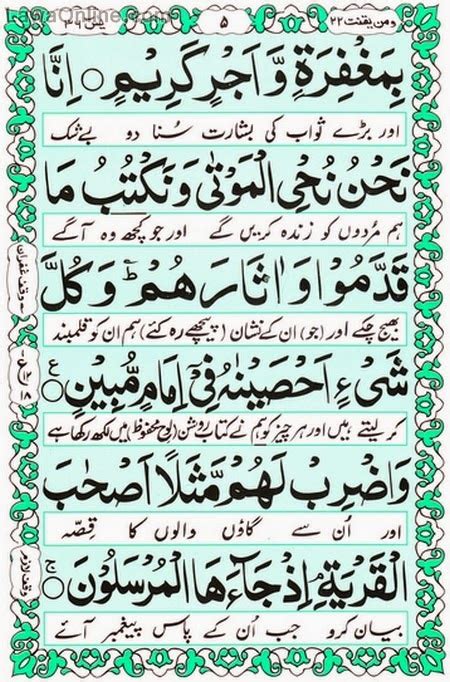 ومن يقنت ٢٢
۵
يٰس ٣٦
بِمَغْفِرَةٍ وَّاَجْرٍ كَرِيْمٍ ○ اِنَّا
اور بڑے ثواب کی بشارت سُنا دو بےشک
نَحْنُ نُحْيِ الْمَوْتٰى وَنَكْتُبُ مَا
ہم مُردوں کو زندہ کریں گے اور جو کچھ وہ آگے
قَدَّمُوْا وَاٰثَارَهُمْ ؕ وَكُلَّ
بھیج چکے اور (جو) ان کے نشان (پیچھے رہ گئے) ہم ان کو قلمبند
شَیْءٍ اَحْصَيْنٰهُ فِيْٓ اِمَامٍ مُّبِيْنٍ ○ ع
کر لیتے ہیں اور ہر چیز کو ہم نے کتاب روشن (لوح محفوظ) میں لکھ رکھا ہے
وَاضْرِبْ لَهُمْ مَّثَلًا اَصْحٰبَ
اور اُن سے گاؤں والوں کا قِصّہ
الْقَرْيَةِ ۘ اِذْ جَآءَهَا الْمُرْسَلُوْنَ ○ ج
بیان کرو جب اُن کے پاس پیغمبر آئے
وقف غفران
وقف لازم